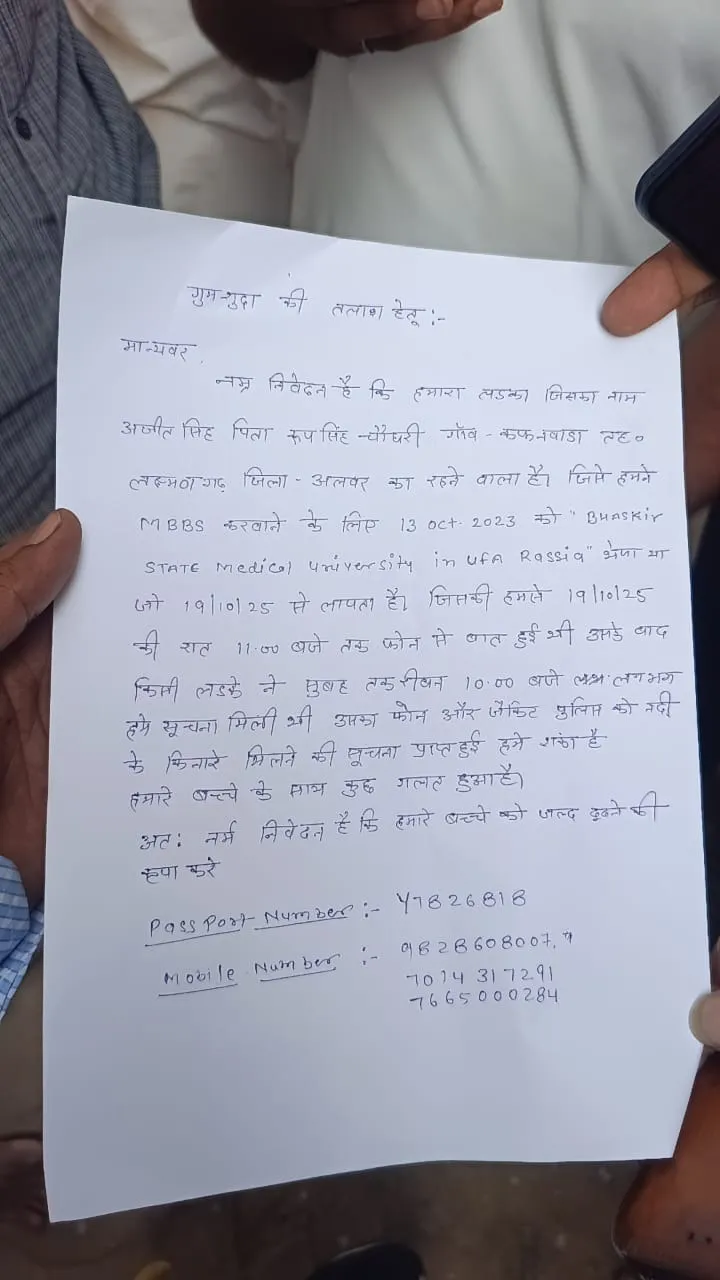 गुम-शुदा की तलाश हेतू :-
मान्यवर,
नम्र निवेदन है कि हमारा लडका जिसका नाम
अजीत सिंह पिता रूप सिंह -चौधरी गाँव - कफनवाडा तह०
लक्ष्मणगढ़ जिला - अलवर का रहने वाला है। जिसे हमने
MBBS करवाने के लिए 13 Oct. 2023 को "Bhaskir
STATE Medical University in UFA Rassia" भेजा था
जो 19/10/25 से लापता है। जिसकी हमसे 19/10/25
की रात 11.00 बजे तक फोन से बात हुई थी उसके बाद
किसी लडके ने सुबह तकरीबन 10.00 बजे लगभग
हमे सूचना मिली थी उसका फोन और जैकिट पुलिस को नदी
के किनारे मिलने की सूचना प्राप्त हुई हमे शंका है
हमारे बच्चे के साथ कुछ गलत हुआ है।
अत: नर्म निवेदन है कि हमारे बच्चे को जल्द ढूढने की
कृपा करे
PassPort Number :- Y7826818
Mobile Number :- 9828608007,
7014317291
7665000284